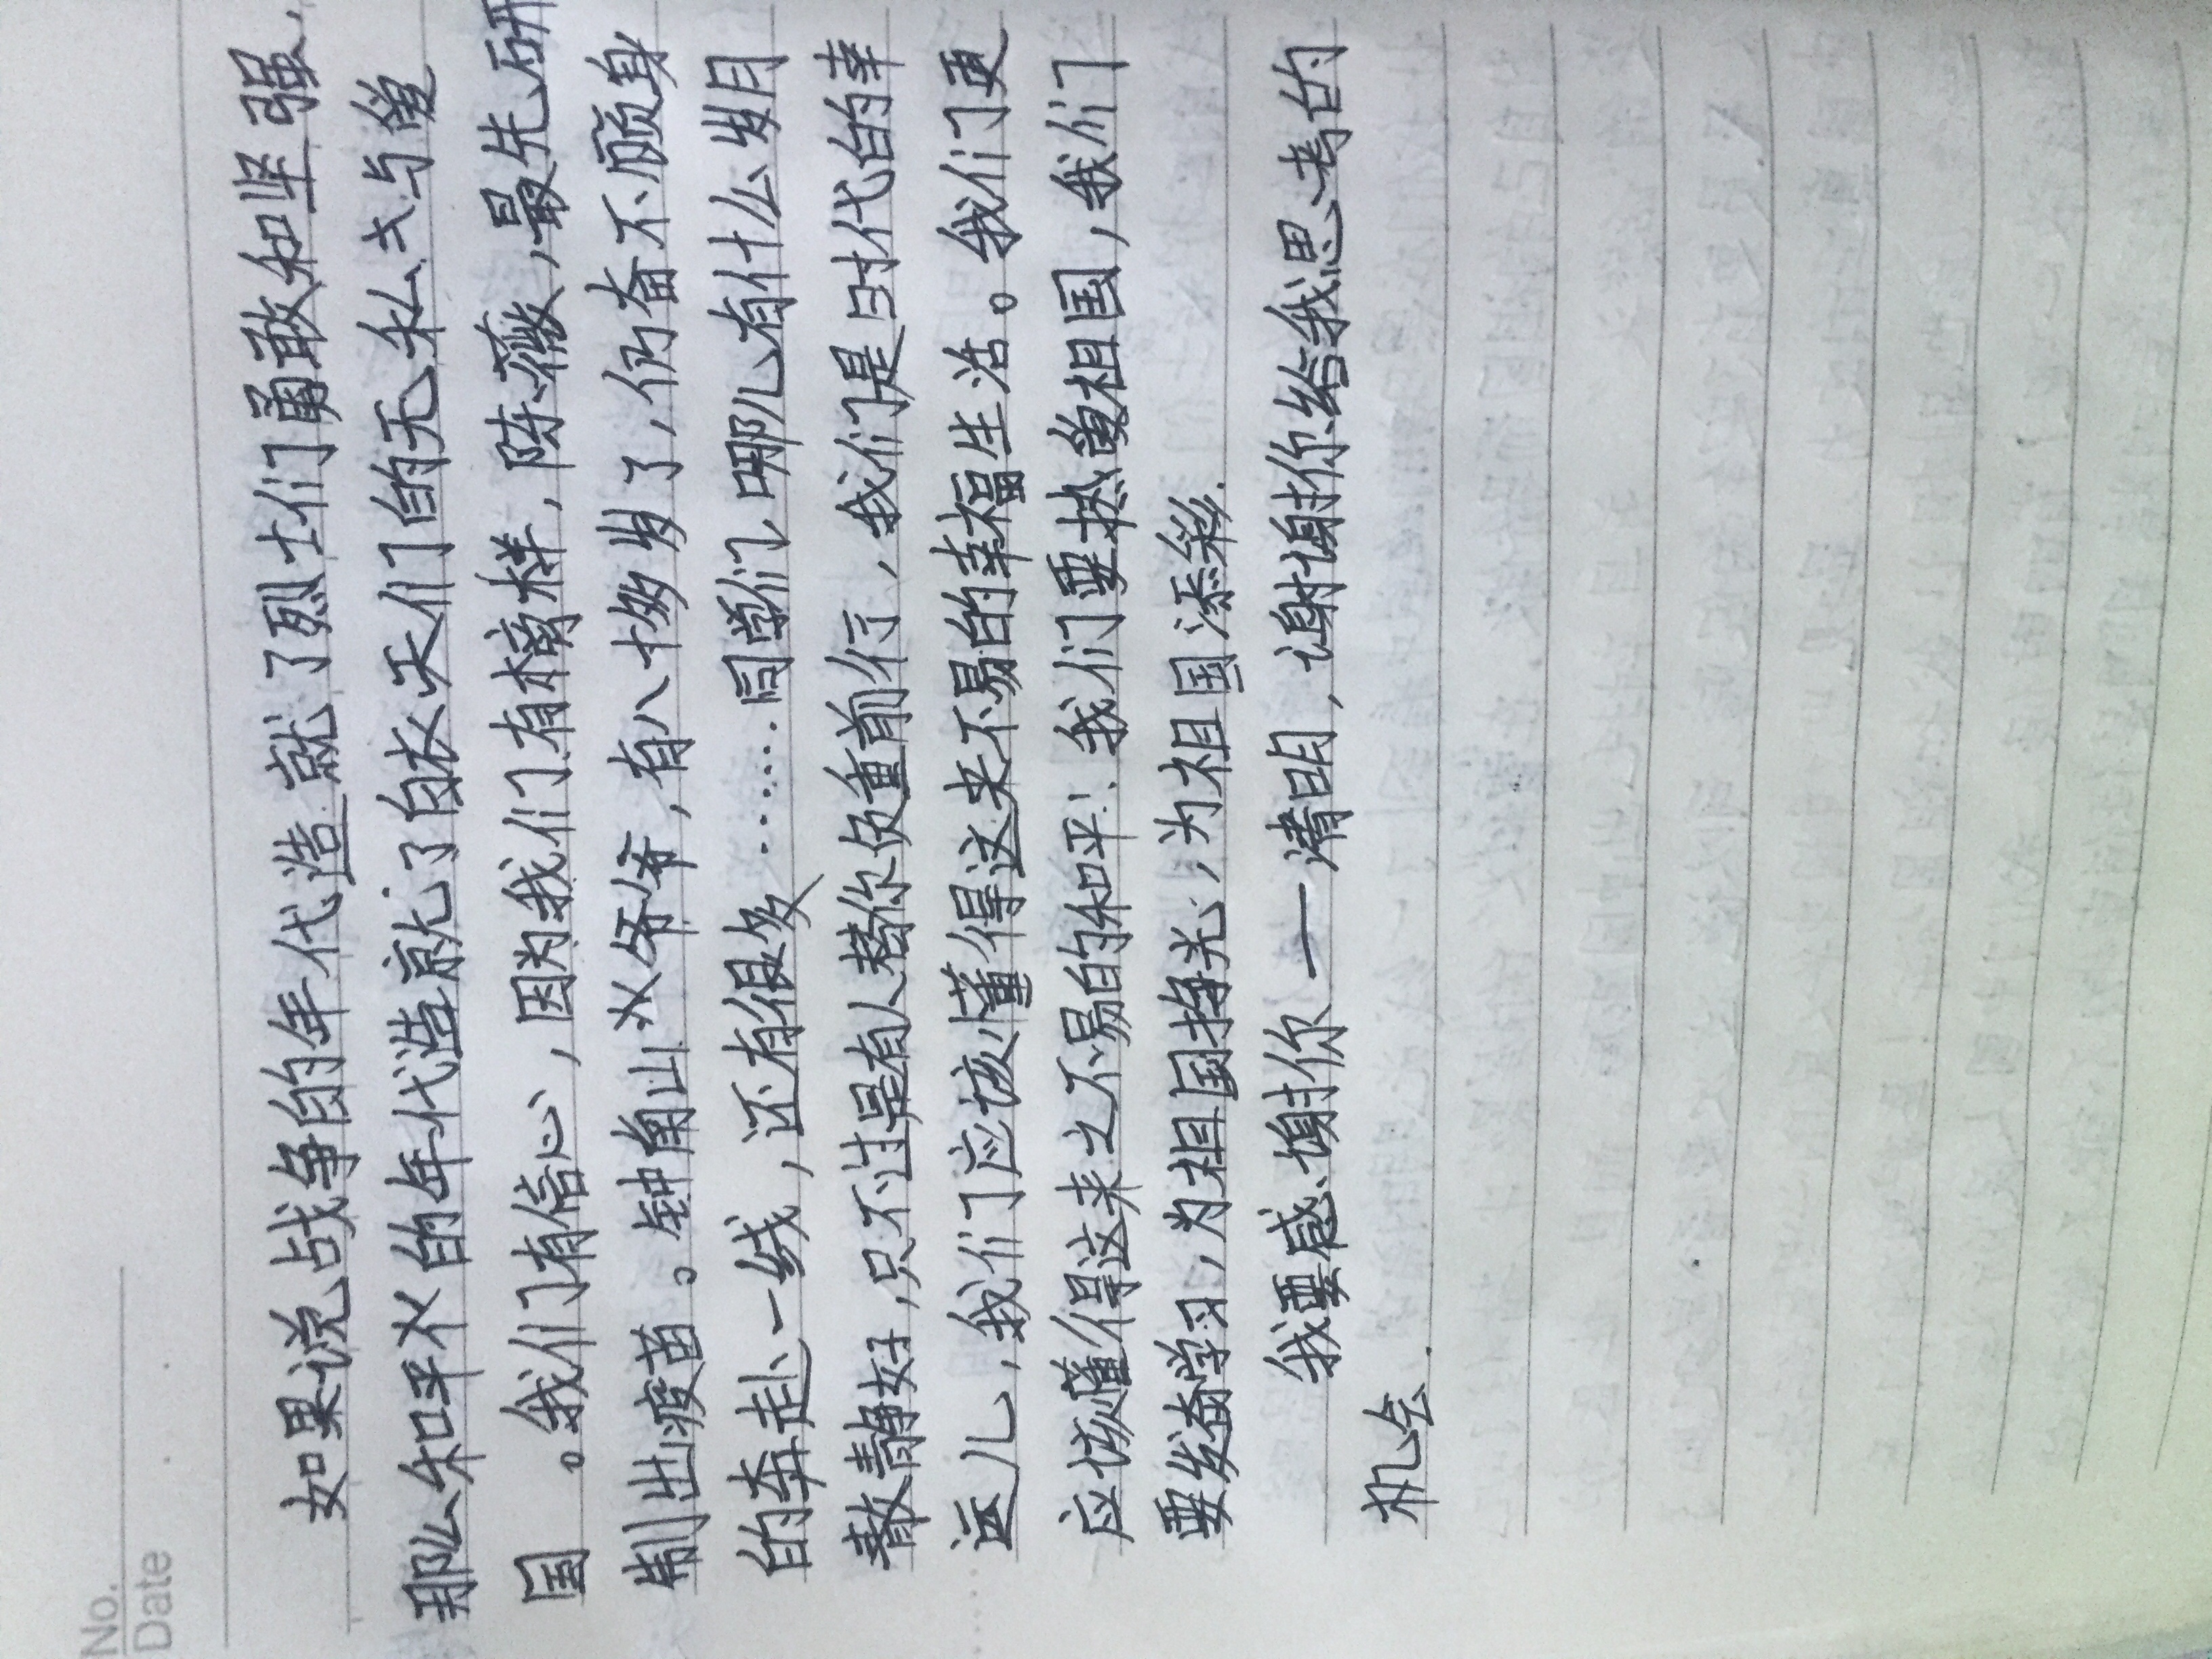 No.
Date
如果说战争的年代造就了烈士们勇敢和坚强,
那么和平年代的年代造就了白衣天们的无私与爱
国。我们有信心,因为我们有榜样,陈薇,最先研
制出疫苗。钟南山爷爷,有八十多岁了,仍奋不顾身
的奔赴一线,还有很多……同学们,哪儿有什么岁月
静好,只不过是有人替你负重前行,我们是时代的幸
运儿,我们应该懂得这来不易的幸福生活。我们更
应该懂得这来之不易的和平!我们要热爱祖国,我们
要发奋学习,为祖国挣光,为祖国添彩.
我要感谢你——清明,谢谢你给我思考的
机会.